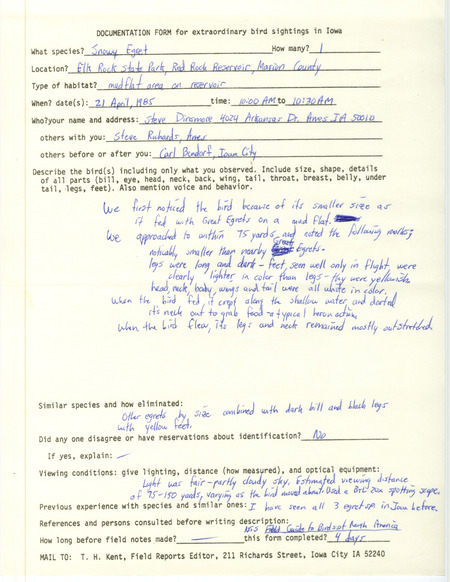 DOCUMENTATION FORM for extraordinary bird sightings in Iowa
What species? Snowy Egret How many? 1
Location? Elk Rock State Park, Red Rock Reservoir, Marion County
Type of habitat? mudflat area on reservoir
When? date(s): 21 April, 1985 time: 10:00 AM to 10:30 AM
Who?your name and address: Steve Dinsmore 4024 Arkansas Dr. Ames IA 50010
others with you: Steve Richards, Ames
others before or after you: Carl Bendorf, Iowa City
Describe the bird(s) including only what you observed. Include size, shape, details
of all parts (bill, eye, head, neck, back, wing, tail, throat, breast, belly, under
tail, legs, feet). Also mention voice and behavior.
We first noticed the bird because of its smaller size as
it fed with Great Egrets on a mud flat.
We approached to within 75 yards and noted the following marks:
noticably smaller than nearby Great Egrets.
legs were long and dark - feet, seen well only in flight, were
clearly lighter in color than legs - they were yellowish
head, neck, body, wings and tail were all white in color.
When the bird fed, it crept along the shallow water, and darted
its neck out to grab food - a typical heron action.
When the bird flew, its legs and neck remained mostly outstretched.
Similar species and how eliminated:
Other egrets by size combined with dark bill and black legs
with yellow feet.
Did any one disagree or have reservations about identification? No
If yes, explain: -
Viewing conditions: give lighting, distance (how measured), and optical equipment:
Light was fair - partly cloudy sky. Estimated viewing distance
of 75-150 yards, varying as the bird moved about. Used a 20x spotting scope.
Previous experience with species and similar ones: I have seen all 3 egret sp. in Iowa before.
References and persons consulted before writing description:
NGS Field Guide to Birds of North America
How long before field notes made? - this form completed? 4 days
MAIL TO: T. H. Kent, Field Reports Editor, 211 Richards Street, Iowa City IA 52240